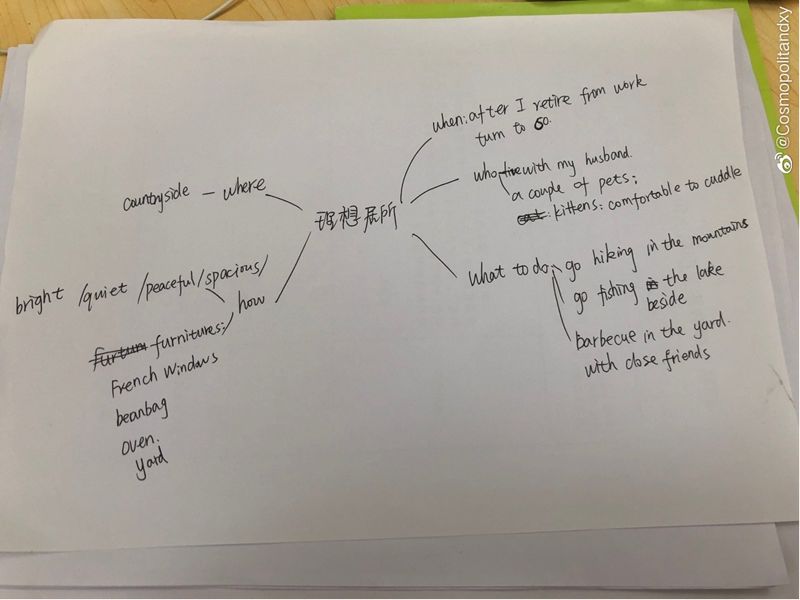 when: after I retire from work
turn to 60.
who with my husband.
a couple of pets;
: kittens: comfortable to cuddle
countryside - where
理想居所
what to do: go hiking in the mountains
go fishing the lake
beside
barbecue in the yard.
with close friends
bright /quiet /peaceful/spacious/
how
furnitures:
French Windows
beanbag
oven.
yard
@Cosmopolitandxy